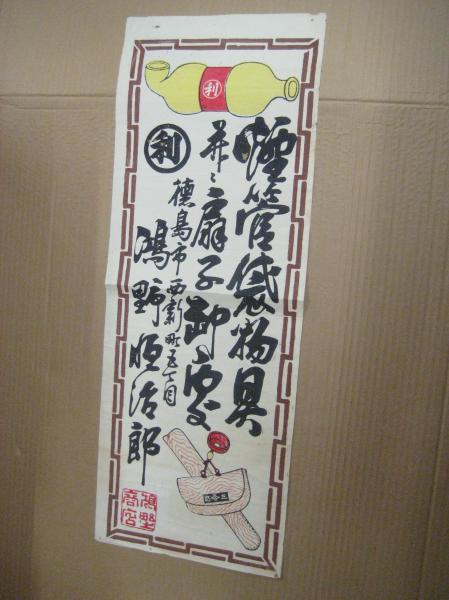 利
煙管袋物具
并ニ扇子卸商
利
徳島市西新町五丁目
鴻野恒治郎
鴻野
商店